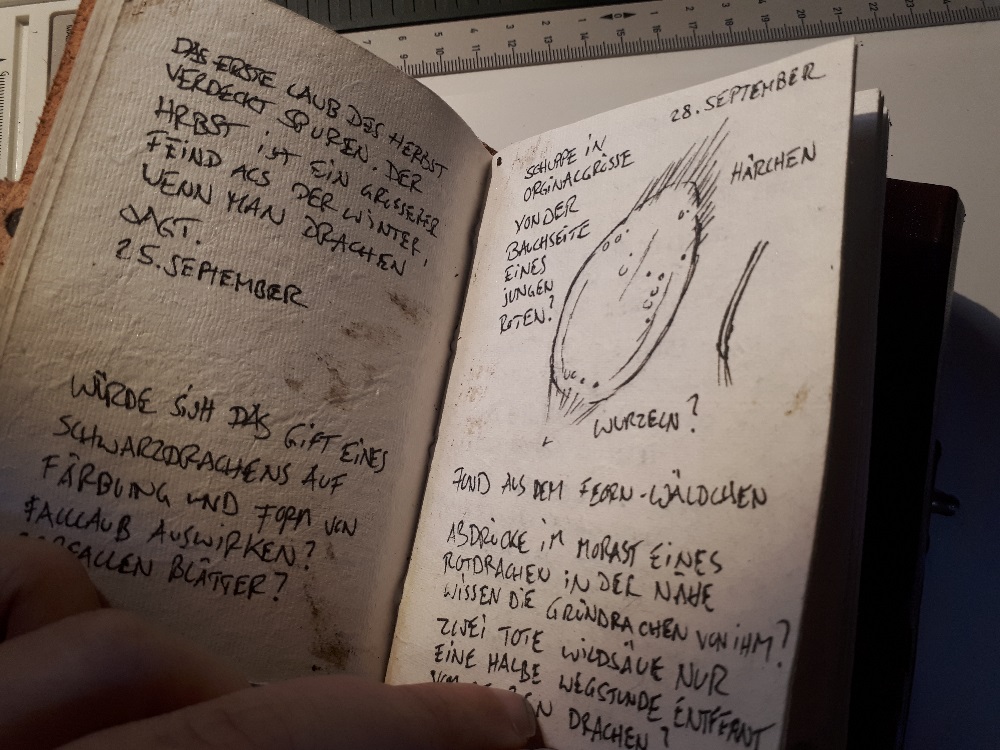 DAS ERSTE LAUB DES HERBST
VERDECKT SPUREN. DER
HRBST IST EIN GRÖSSERER
FEIND ALS DER WINTER,
WENN MAN DRACHEN
JAGT.
25. SEPTEMBER
WÜRDE SICH DAS GIFT EINES
SCHWARZDRACHENS AUF
FÄRBUNG UND FORM VON
FALLLAUB AUSWIRKEN?
BLÄTTER?
28. SEPTEMBER
SCHUPPE IN
ORGINALGRÖSSE
VON DER
BAUCHSEITE
EINES
JUNGEN
ROTEN?
HÄRCHEN
WURZELN?
FUND AUS DEM FEORN-WÄLDCHEN
ABDRÜCKE IM MORAST EINES
ROTDRACHEN IN DER NÄHE
WISSEN DIE GRÜNDRACHEN VON IHM?
ZWEI TOTE WILDSÄUE NUR
EINE HALBE WEGSTUNDE ENTFERNT
DRACHEN?